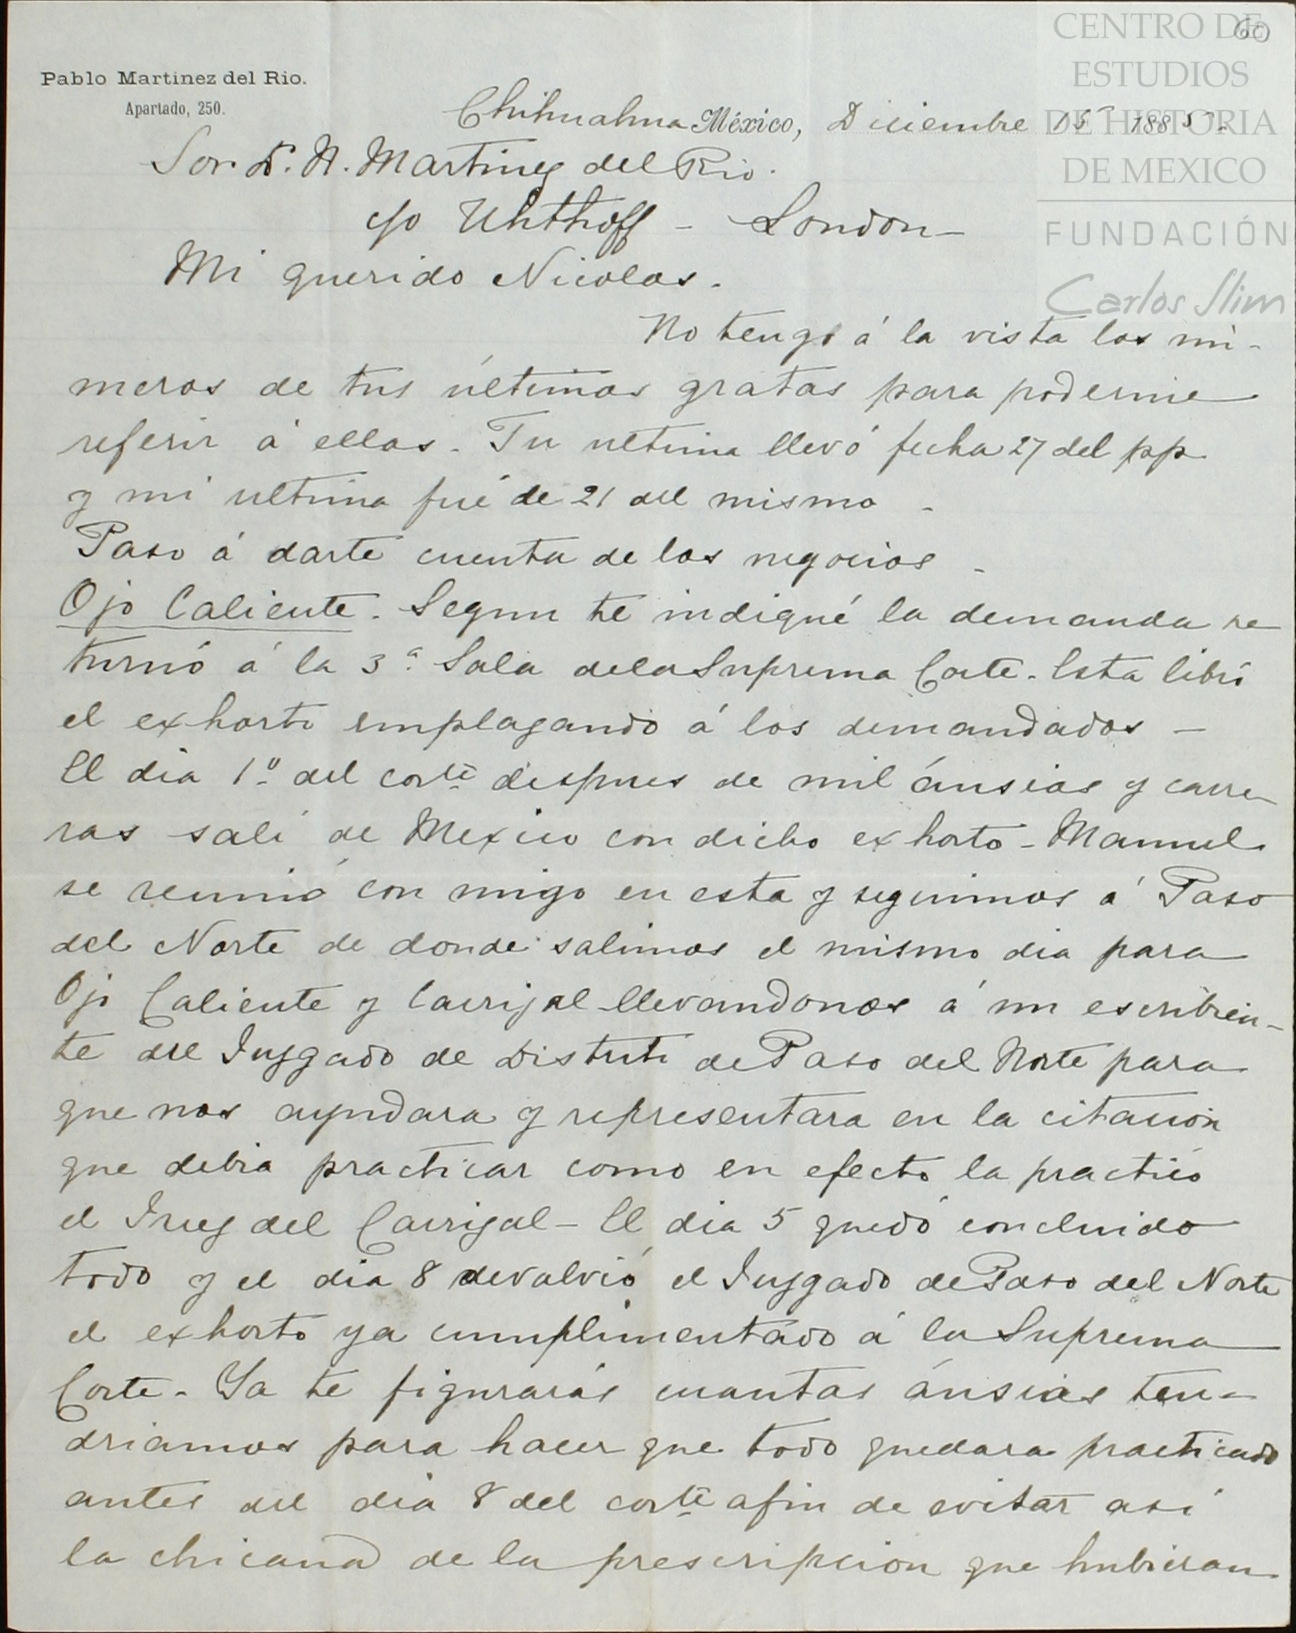 60
CENTRO DE
ESTUDIOS
DE HISTORIA
DE MEXICO
FUNDACIÓN
Carlos Slim
Pablo Martinez del Rio.
Apartado, 250.
Chihuahua México, Diciembre 15 1885.
Sor. D. N. Martinez del Rio.
c/o Uhthoff - London -
Mi querido Nicolas.
No tengo á la vista los nú-
meros de tus últimas gratas para poderme
referir á ellas. Tu ultima llevó fecha 27 del pp.
y mi ultima fué de 21 del mismo -
Paso á darte cuenta de los negocios -
Ojo Caliente. Segun te indiqué la demanda se
turnó á la 3ª Sala de la Suprema Corte. Esta libró
el exhorto emplazando á los demandados -
El dia 1º del corte despues de mil ánsias y carre-
ras salí de Mexico con dicho exhorto - Manuel
se reunió con migo en esta y seguimos á Paso
del Norte de donde salimos el mismo dia para
Ojo Caliente y Carrizal llevandonos á un escribien-
te del Juzgado de Distrito de Paso del Norte para
que nos ayudara y representara en la citacion
que debia practicar como en efecto la practicó
el Juez del Carrizal - El dia 5 quedó concluido
todo y el dia 8 devolvió el Juzgado de Paso del Norte
el exhorto ya cumplimentado á la Suprema
Corte. Ya te figurarás cuantas ánsias ten-
driamos para hacer que todo quedara practicado
antes del dia 8 del corte afin de evitar asi
la chicana de la prescripcion que hubieran